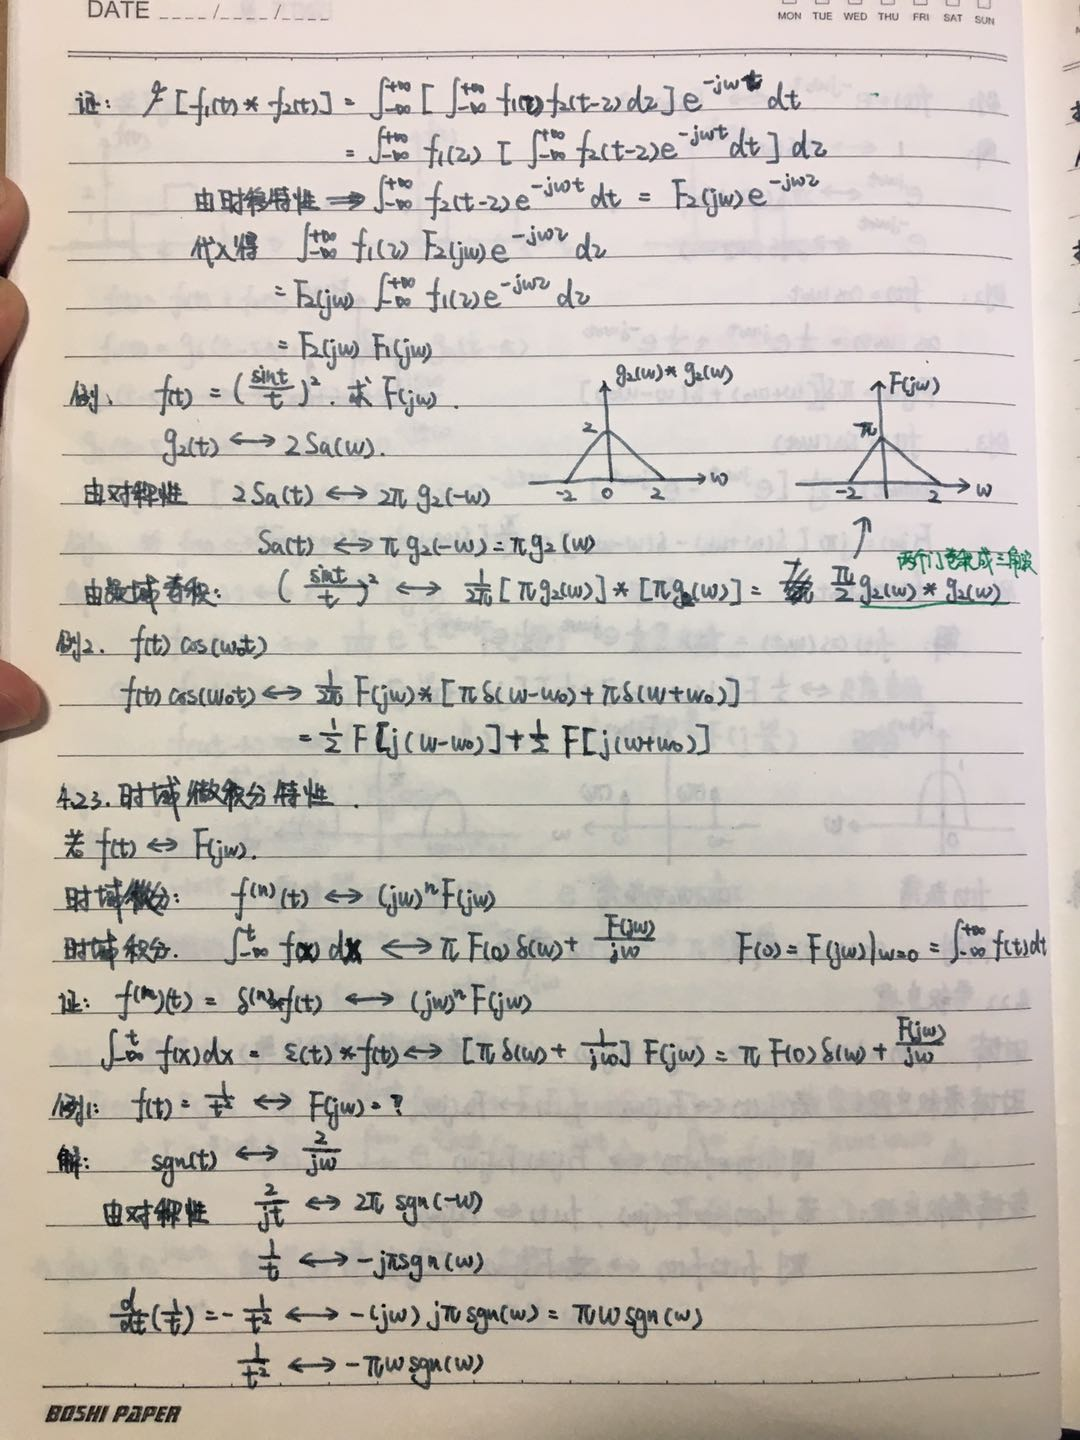 DATE ____/____/____
MON TUE WED THU FRI SAT SUN
证: F[f₁(t) * f₂(t)] = ∫_{-∞}^{+∞} [∫_{-∞}^{+∞} f₁(z) f₂(t-z) dz] e^{-jwt} dt
= ∫_{-∞}^{+∞} f₁(z) [∫_{-∞}^{+∞} f₂(t-z) e^{-jwt} dt] dz
由时移特性 ⇒ ∫_{-∞}^{+∞} f₂(t-z) e^{-jwt} dt = F₂(jw) e^{-jwz}
代入得 ∫_{-∞}^{+∞} f₁(z) F₂(jw) e^{-jwz} dz
= F₂(jw) ∫_{-∞}^{+∞} f₁(z) e^{-jwz} dz
= F₂(jw) F₁(jw)
例1. f(t) = (sint/t)². 求 F(jw).
g₂(w) * g₂(w)
2
-2 0 2 w
F(jw)
π
-2 2 w
g₂(t) ↔ 2Sa(w).
由对称性 2Sa(t) ↔ 2π g₂(-w)
Sa(t) ↔ π g₂(-w) = π g₂(w)
两个门卷积成三角波
由频域卷积: (sint/t)² ↔ 1/2π [π g₂(w)] * [π g₂(w)] = π/2 g₂(w) * g₂(w)
例2. f(t) cos(w₀t)
f(t) cos(w₀t) ↔ 1/2π F(jw) * [π δ(w-w₀) + π δ(w+w₀)]
= 1/2 F[j(w-w₀)] + 1/2 F[j(w+w₀)]
4.2.3. 时域微积分特性.
若 f(t) ↔ F(jw).
时域微分: f^{(n)}(t) ↔ (jw)ⁿ F(jw)
时域积分. ∫_{-∞}^{t} f(x) dx ↔ π F(0) δ(w) + F(jw)/jw F(0) = F(jw)|w=0 = ∫_{-∞}^{+∞} f(t) dt
证: f^{(n)}(t) = δ^{(n)} * f(t) ↔ (jw)ⁿ F(jw)
∫_{-∞}^{t} f(x) dx = ε(t) * f(t) ↔ [π δ(w) + 1/jw] F(jw) = π F(0) δ(w) + F(jw)/jw
例1: f(t) = 1/t² ↔ F(jw) = ?
解: sgn(t) ↔ 2/jw
由对称性 2/jt ↔ 2π sgn(-w)
1/t ↔ -jπ sgn(w)
d/dt (1/t) = - 1/t² ↔ -(jw) jπ sgn(w) = πw sgn(w)
1/t² ↔ -πw sgn(w)
BOSHI PAPER